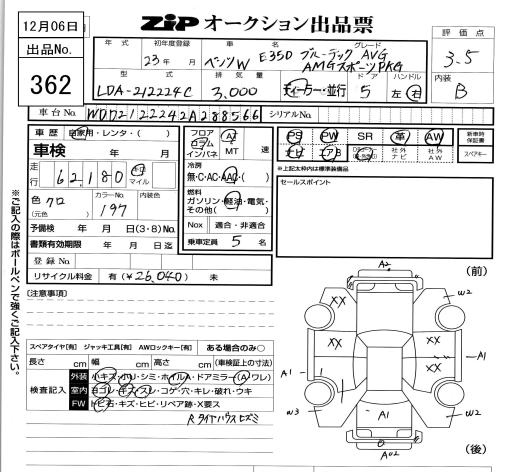 12月06日
ZiP オークション出品票
出品No.
362
年式
初年度登録
車名
グレード
評価点
23年
ベンツW
E350 ブルーテック AVG
AMGスポーツPKG
3.5
型式
排気量
ドア
ハンドル
内装
LDA-212224C
3,000
ディーラー・並行
5
左・右
B
車台No.
WDD2122242A288566
シリアルNo.
車歴
自家用・レンタ・( )
フロア
フロム
インパネ
AT
MT
速
PS
PW
SR
革
AW
新車時
保証書
車検
年
月
冷房
無・C・AC・AAC・(
ナビ
エアB
社外
ナビ
社外
AW
スペアキー
*上記太枠内は標準装備品
走行
62,180
キロ
マイル
燃料
ガソリン・軽油・電気・
その他( )
セールスポイント
色
クロ
(元色)
カラーNo.
197
内装色
Nox
適合・非適合
予備検
年
月
日(3・8)No.
書類有効期限
年
月
日迄
乗車定員
5
名
登録No.
リサイクル料金
有(¥26,040)
未
(注意事項)
※ご記入の際はボールペンで強くご記入下さい。
スペアタイヤ[有] ジャッキ工具[有] AWロックキー[有]
ある場合のみ○
長さ
cm
幅
cm
高さ
cm
(車検証上の寸法)
検査記入
外装
小キズ・ホリ・シミ・ホイルA・ドアミラー(A・ワレ)
室内
ヨゴレ・キズ・スレ・コゲ・穴・キレ・破れ・ウキ
FW
トビ石・キズ・ヒビ・リペア跡・X要ス
Rタイヤハウスヒズミ
(前)
A2
XX
XX
W2
XX
A1
A1
W3
A1
W2
(後)